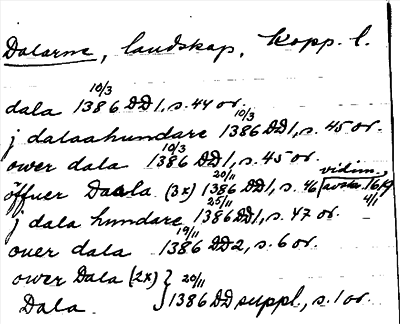 Dalarne, landskap, Kopp. l.
dala 10/3 1386 DD1, s. 44 or.
j dalaahundare 10/3 1386 DD1, s. 45 or.
ower dala 10/3 1386 DD1, s. 45 or.
öffuer Daala (3x) 20/11 1386 DD1, s. 46 vidim. avskr. 16/9 4/1
j dala hundare 25/11 1386 DD1, s. 47 or.
ouer dala 19/11 1386 DD2, s. 6 or.
ower Dala (2x)
Dala } 20/11 1386 DD suppl, s. 1 or.